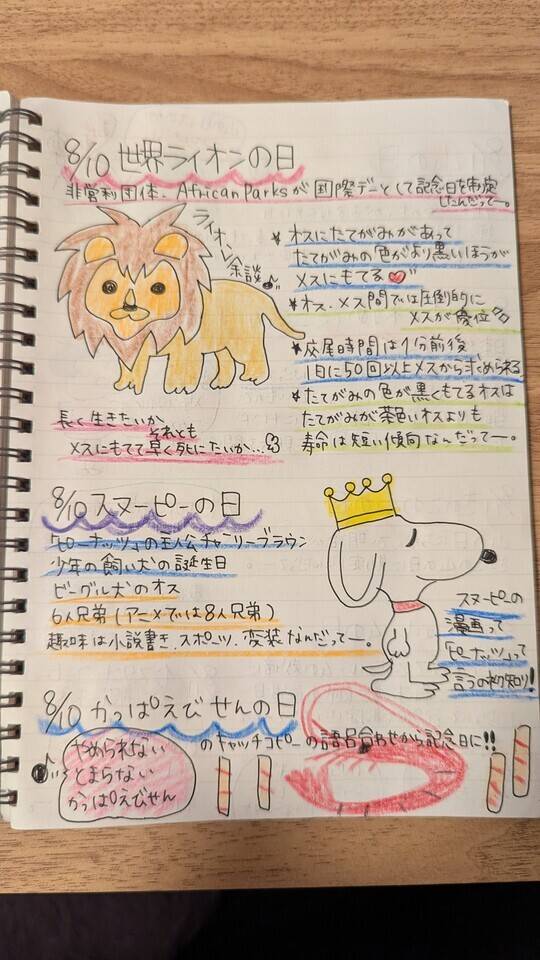 8/10 世界ライオンの日
非営利団体、African Parksが国際デーとして記念日を制定
したんだってー。
ライオン余談♪
★ オスにたてがみがあって
たてがみの色がより黒いほうが
メスにもてる
★ オス、メス間では圧倒的に
メスが優位
★ 交尾時間は1分前後
1日に50回以上メスから求められる
★ たてがみの色が黒くもてるオスは
たてがみが茶色いオスよりも
寿命は短い傾向なんだってー。
長く生きたいか
それとも
メスにもてて早く死にたいか…
8/10 スヌーピーの日
「ピーナッツ」の主人公チャーリーブラウン
少年の飼い犬の誕生日
ビーグル犬のオス
6人兄弟(アニメでは8人兄弟)
趣味は小説書き、スポーツ、変装なんだってー。
スヌーピーの
漫画って
「ピーナッツ」って
言うの初知り!
8/10 かっぱえびせんの日
やめられない
とまらない
かっぱえびせん
のキャッチコピーの語呂合わせから記念日に!!